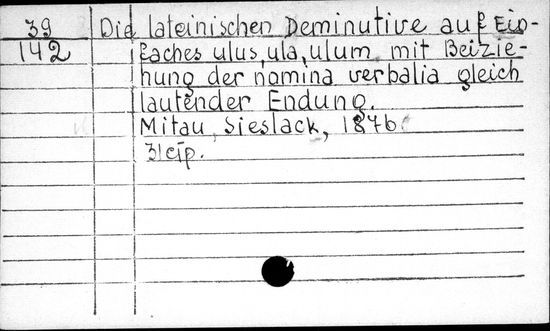 39 Die lateinischen Deminutive auf Ein-
142 faches ulus, ula, ulum mit Beizie-
hung der nomina verbalia gleich
lautender Endung.
Mitau, Sieslack, 1876.
31 стр.